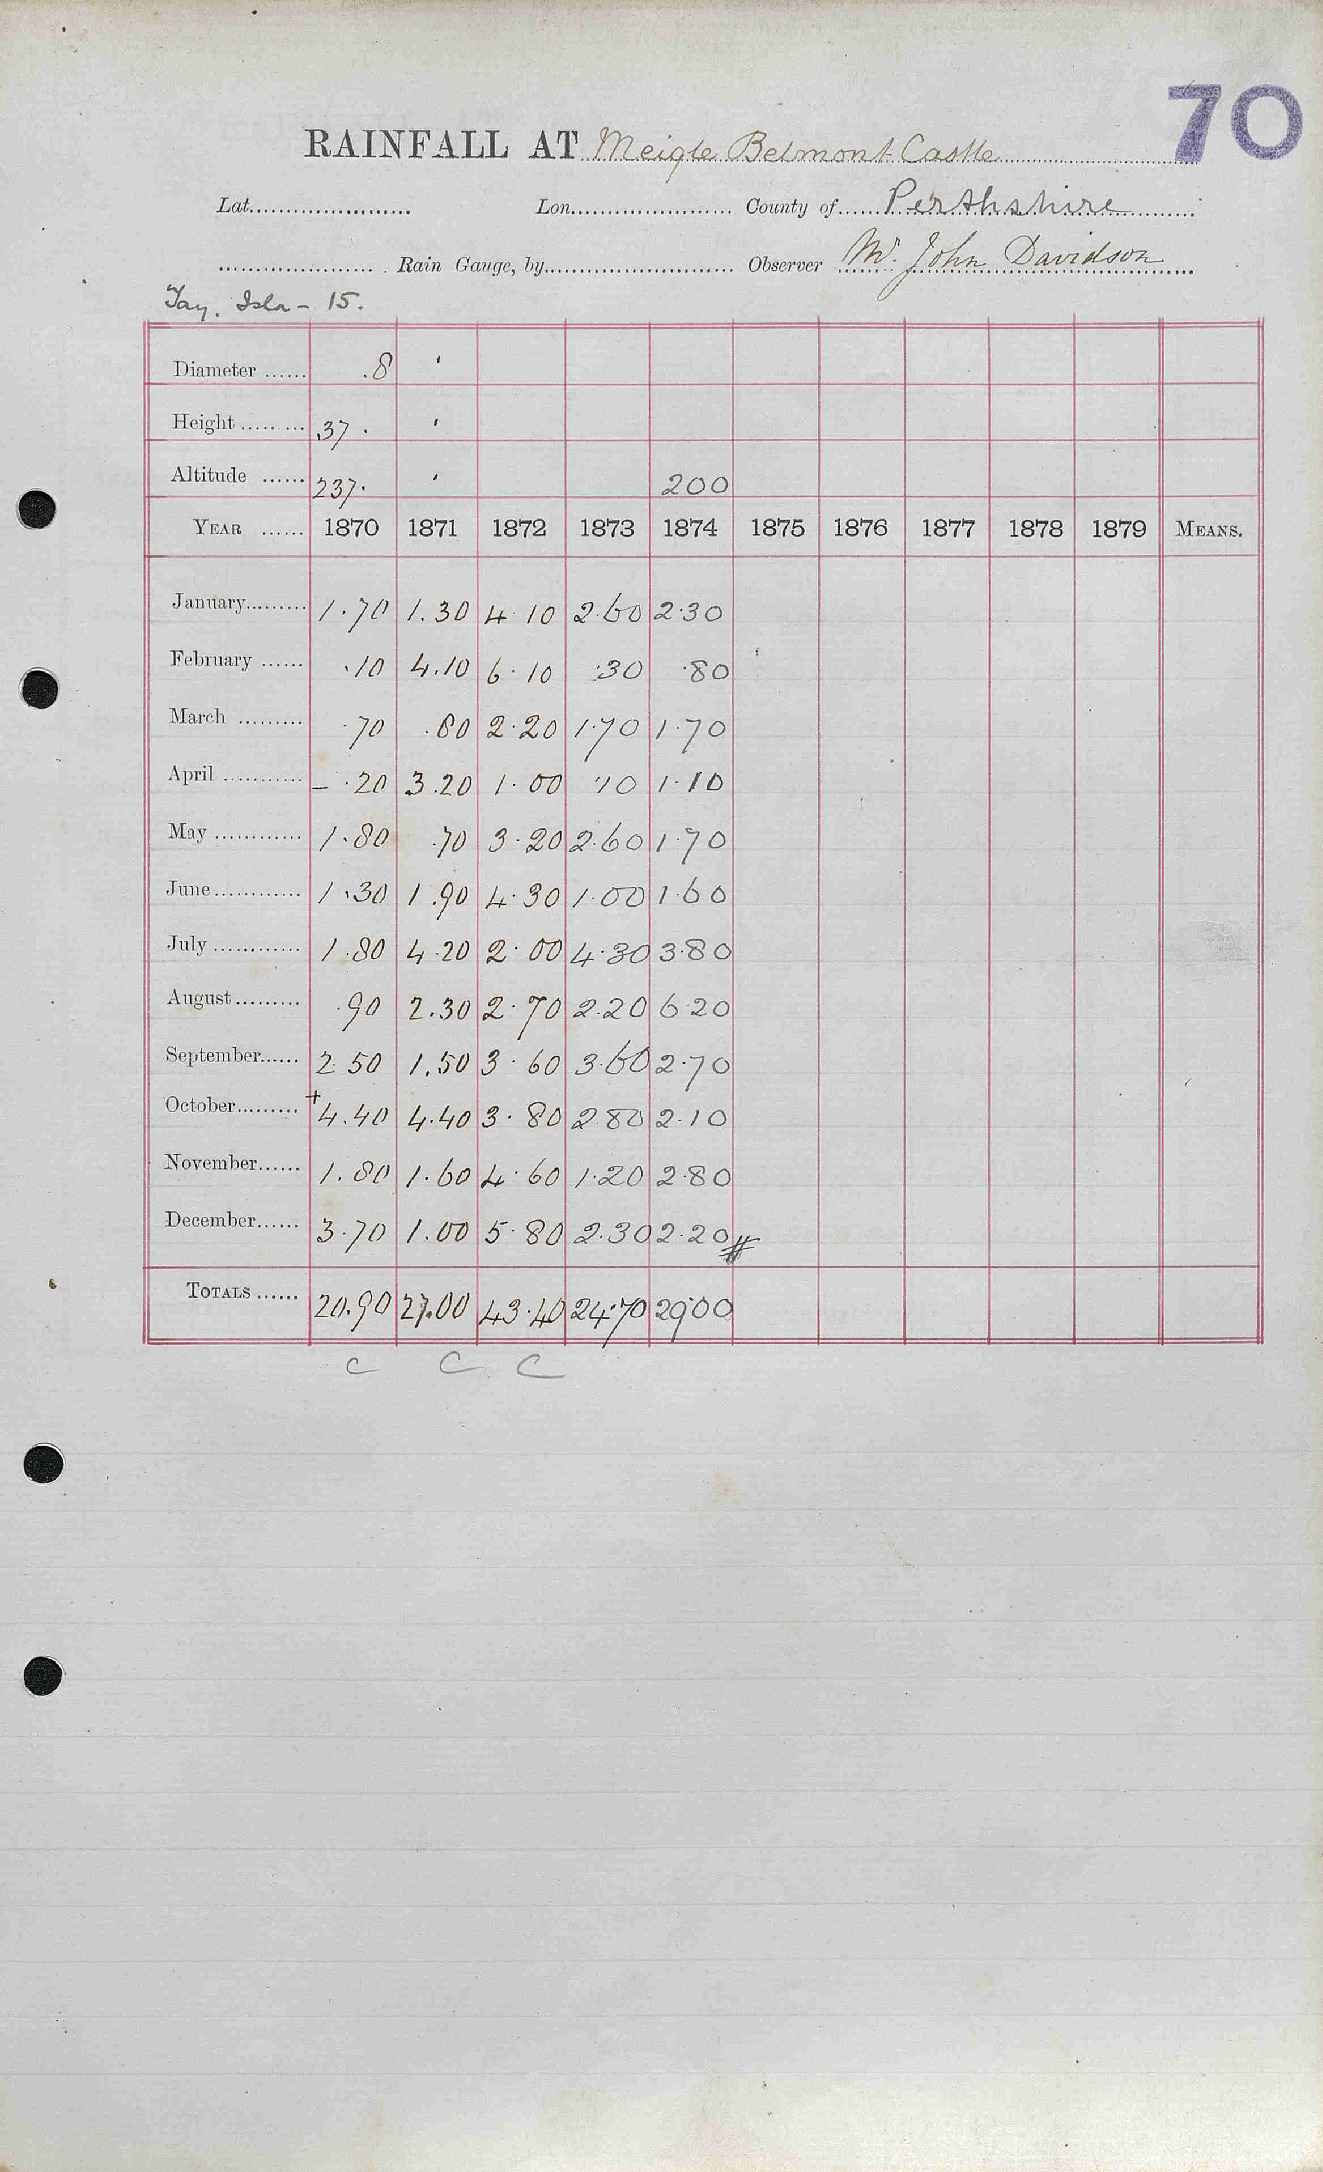 70
RAINFALL AT Meigle Belmont Castle
Lat. Lon. County of Perthshire
Rain Gauge, by Observer Mr. John Davidson
Tay. Isla - 15.
Diameter ...... .8 '
Height ......... 37. '
Altitude ...... 237. ' 200
YEAR ...... 1870 1871 1872 1873 1874 1875 1876 1877 1878 1879 MEANS.
January......... 1.70 1.30 4.10 2.60 2.30
February ...... .10 4.10 6.10 .30 .80
March ......... .70 .80 2.20 1.70 1.70
April ............ - .20 3.20 1.00 .10 1.10
May ............ 1.80 .70 3.20 2.60 1.70
June............ 1.30 1.90 4.30 1.00 1.60
July ............ 1.80 4.20 2.00 4.30 3.80
August......... .90 2.30 2.70 2.20 6.20
September...... 2.50 1.50 3.60 3.60 2.70
October......... +4.40 4.40 3.80 2.80 2.10
November...... 1.80 1.60 4.60 1.20 2.80
December...... 3.70 1.00 5.80 2.30 2.20 #
TOTALS ...... 20.90 27.00 43.40 24.70 29.00
C C C